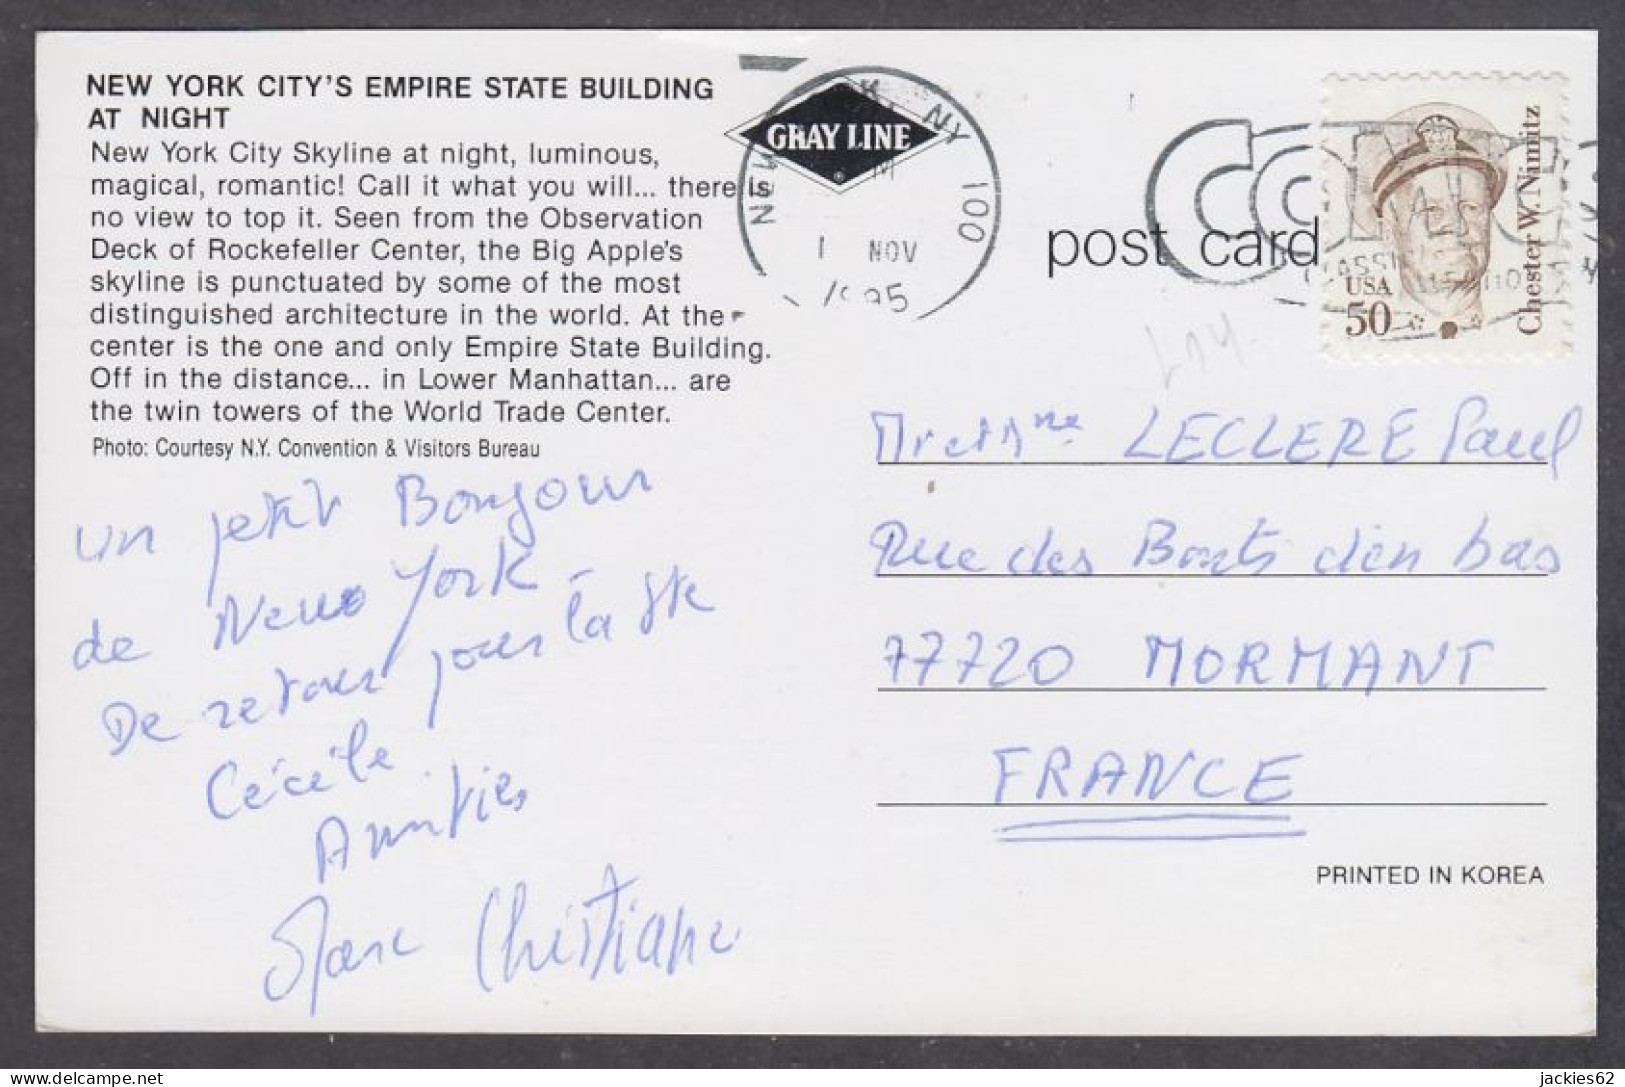 NEW YORK CITY'S EMPIRE STATE BUILDING
AT NIGHT
New York City Skyline at night, luminous,
magical, romantic! Call it what you will... there is
no view to top it. Seen from the Observation
Deck of Rockefeller Center, the Big Apple's
skyline is punctuated by some of the most
distinguished architecture in the world. At the
center is the one and only Empire State Building.
Off in the distance... in Lower Manhattan... are
the twin towers of the World Trade Center.
Photo: Courtesy N.Y. Convention & Visitors Bureau
un petit Bonjour
de New York
De retour pour la Ste
Cécile.
Amitiés
Christiane
GRAY LINE
®
NY 100
1 NOV
1995
post card
USA
50
Chester W. Nimitz
Mr et Mme LECLERE Paul
Rue des d'en bas
77720 MORMANT
FRANCE
PRINTED IN KOREA
jackies62